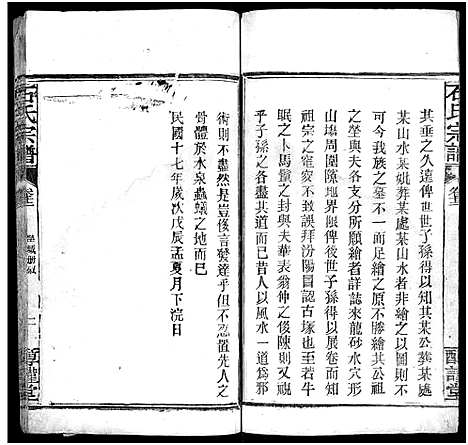 石氏宗譜
卷三
醇謹堂
其垂之久遠俾世世子孫得以知其某公葬某處
某山水某妣葬某處某山水者非繪之不為功不
可今我族之墓不一而足繪之原不勝繪其公祖
之塋與夫各支分所願繪者詳誌來龍砂水穴形
山塲周圍隣地界限俾後世子孫得以展卷而知
祖宗之窀穸不致誤拜汾陽冒認古塚也至若牛
眠之卜馬鬣之封與夫華表翁仲之後陳則具有
子若孫在焉而已昔人以風水一道為邪
術則不盡然是豈俊言發達乎但不忍置先人之
骨體於水泉蟲蟻之地而已
民國十七年歲次戊辰孟夏月下浣日
石氏宗譜
卷三
醇謹堂